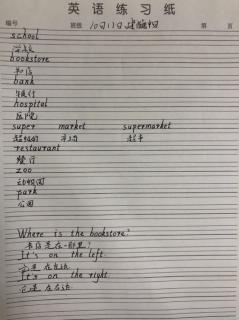 英语练习纸
编号 班级 10月11日 第 页
school
学校
bookstore
书店
bank
银行
hospital
医院
super market supermarket
超级的 市场 超市
restaurant
餐厅
zoo
动物园
park
公园
Where is the bookstore?
书店是在哪里?
It's on the left.
它是在左边
It's on the right.
它是在右边